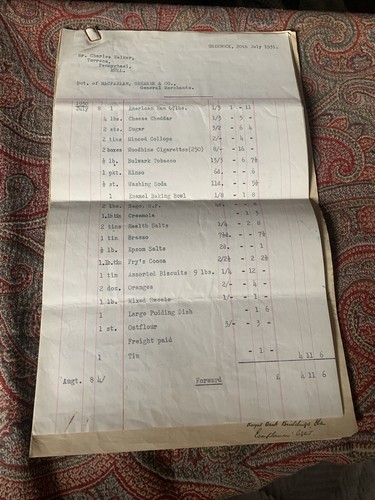 20th July 19
Mr. Charles
Terrace,
MULL.
Bot. of & CO.,
General Merchants.
July 8 1 American Ham 1/3 1 - 11
4 lbs. Cheese Cheddar 1/3 - 5 -
2 sts. Sugar 3/2 - 6 4
2 tins Sliced Collops 2/- - 4 -
2 boxes Woodbine Cigarettes(250) 8/- - 16 -
½ lb. Bulwark Tobacco 13/3 - 6 7½
1 pkt. Rinso 6d. - 6
½ st. Washing Soda 11d. - 5½
1 Enamel Baking Bowl 1/8 - 1 8
2 lbs. Sago
1.lb tin Creamola - 1 3
2 tins Health Salts 1/4 - 2 8
1 tin Brasso 7½d. - - 7½
½ lb. Epsom Salts 2d. - - 1
1.lb.tin Fry's Cocoa 2/2½ - 2 2½
1 tin Assorted Biscuits 9 lbs. 1/4 - 12 -
2 doz. Oranges 2/- - 4 -
1 lb. Mixed Sweets 1/- - 1 -
1 Large Pudding Dish - 1 6
1 st. Oatflour 3/- - 3 -
Freight paid
1 Tin - 1 -
4 11 6
Augt. 8 Forward £ 4 11 6